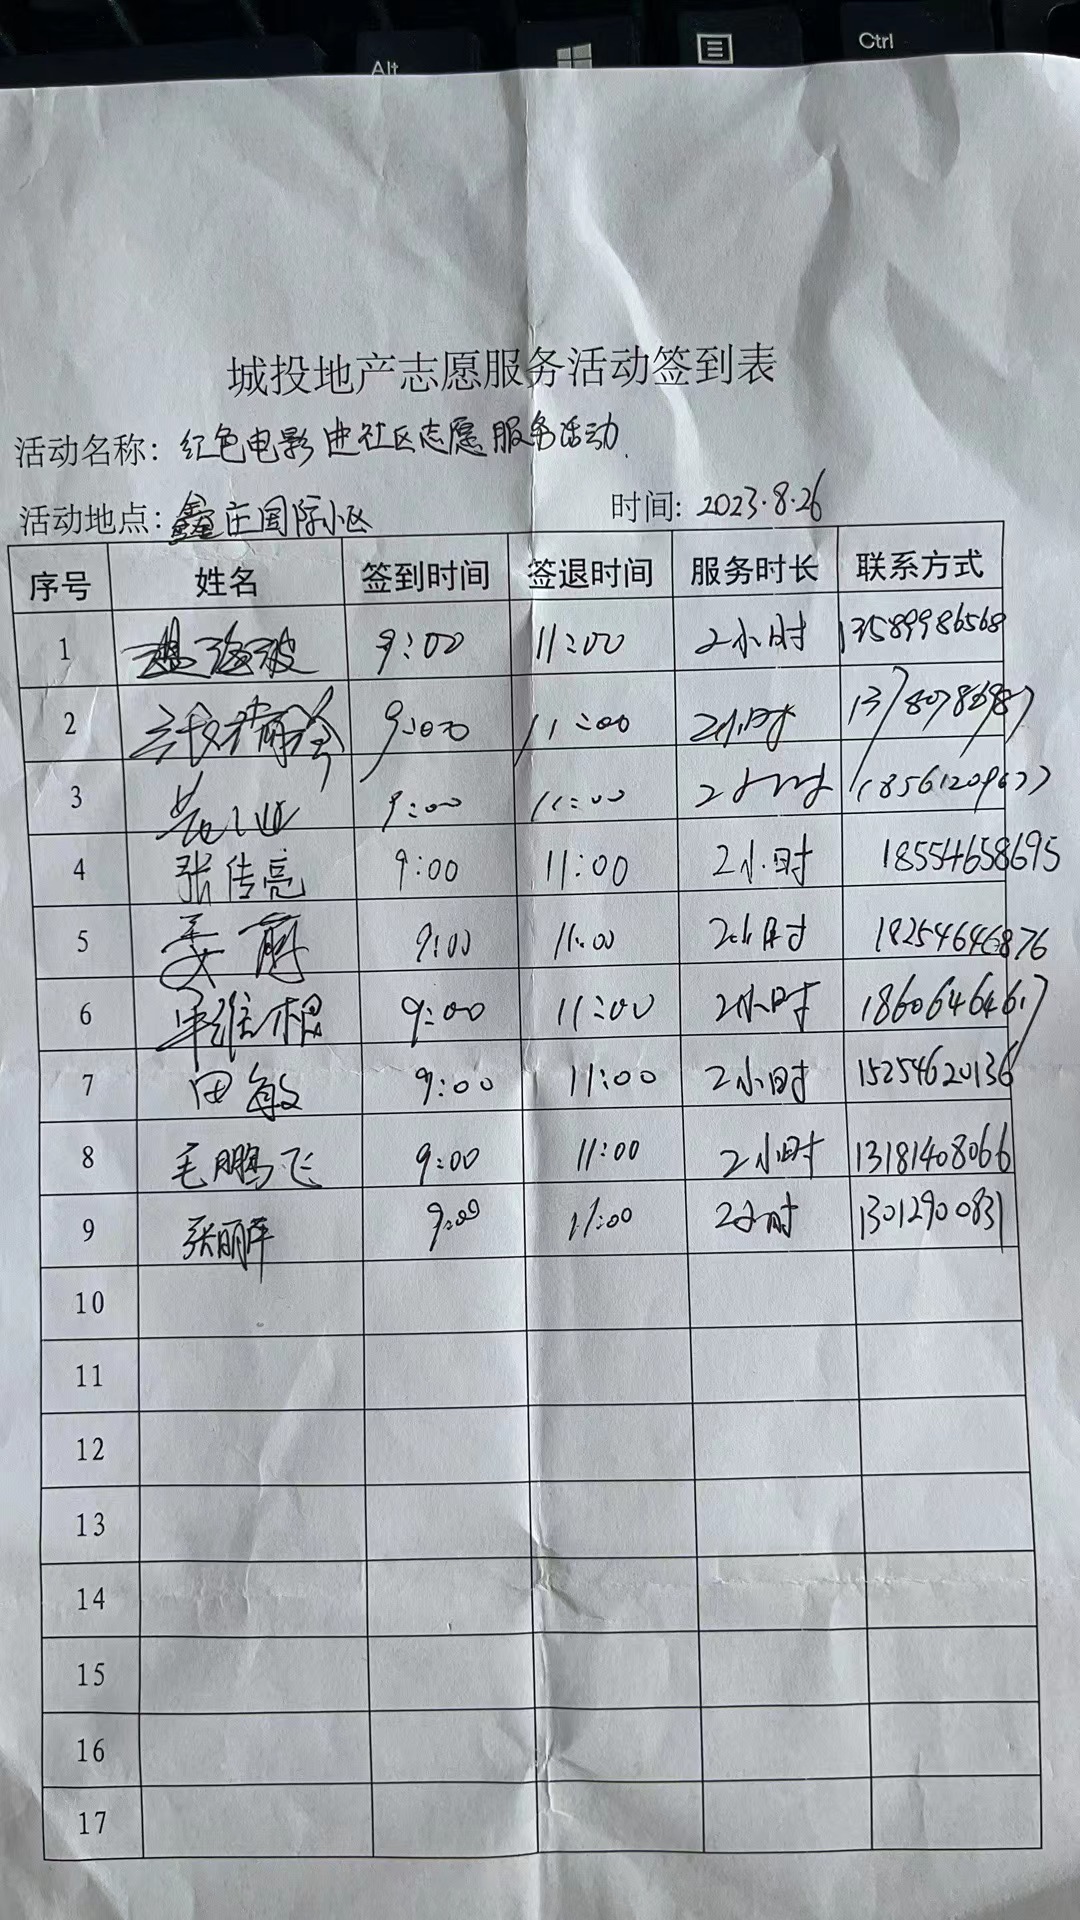 Alt
Ctrl
城投地产志愿服务活动签到表
活动名称: 红色电影进社区志愿服务活动
活动地点: 鑫庄国际小区 时间: 2023.8.26
序号 姓名 签到时间 签退时间 服务时长 联系方式
1 9:00 11:00 2小时 13589986568
2 9:00 11:00 2小时
3 9:00 11:00 2小时
4 张传亮 9:00 11:00 2小时 18554658695
5 姜蔚 9:00 11:00 2小时 18254646876
6 9:00 11:00 2小时 18606464617
7 田敏 9:00 11:00 2小时 15254620136
8 毛鹏飞 9:00 11:00 2小时 13181408066
9 张丽萍 9:00 11:00 2小时 13012900831
10
11
12
13
14
15
16
17